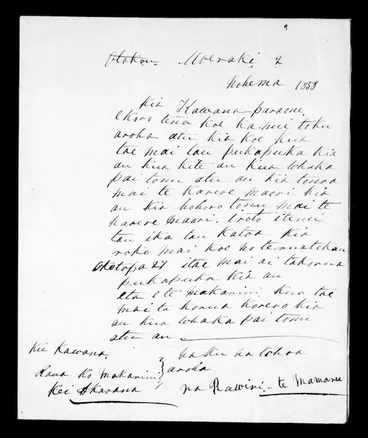 Otakou. Moeraki. 2
Nohema 1858
Kia Kawana paraone
Ehoa tena koe ka nui toku
aroha atu kia koe kua
tae mai tau pukapuka kia
au kua kite au kua whaka
pai tonu atu au kia tonoa
mai te karere maori kia
au kia hohoro tonu mai te
karere maori. I roto i tenei
tau ika tau katoa kia
roko mai koe no te
Oketopa 27 i tae mai ai takorua
pukapuka kia au
ata e te Makarini kua tae
mai ta korua korero kia
au kua whaka pai tonu
atu au
kia kawana,
Raua ko Makarini
kei Akarana
na ku na to hoa
aroha
na Rawiri te Mamaru